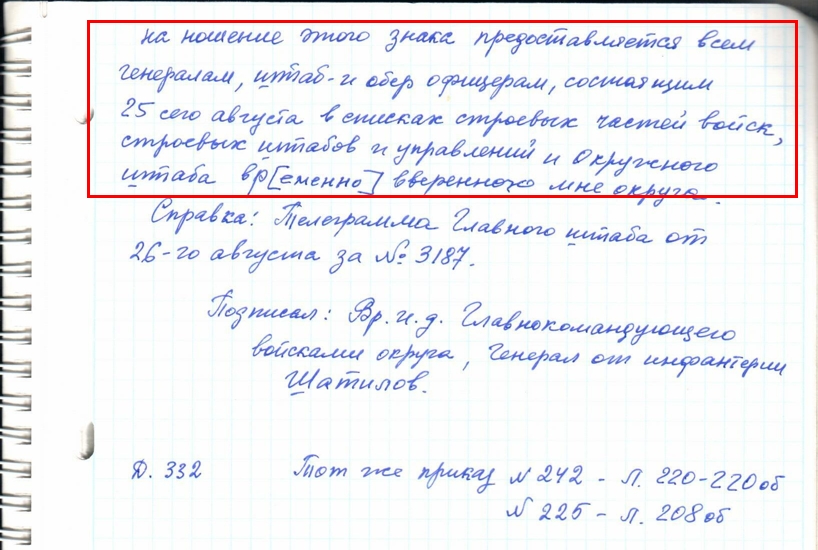 на ношение этого знака предоставляется всем
генералам, штаб- и обер офицерам, состоящим
25 сего августа в списках строевых частей войск,
строевых штабов и управлений и Окружного
штаба вр[еменно] вверенного мне округа.
Справка: Телеграмма Главного штаба от
26-го августа за № 3187.
Подписал: Вр. и. д. Главнокомандующего
войсками округа, Генерал от инфантерии
Шатилов.
Д. 332 Тот же приказ № 242 - Л. 220-220об
№ 225 - Л. 208об